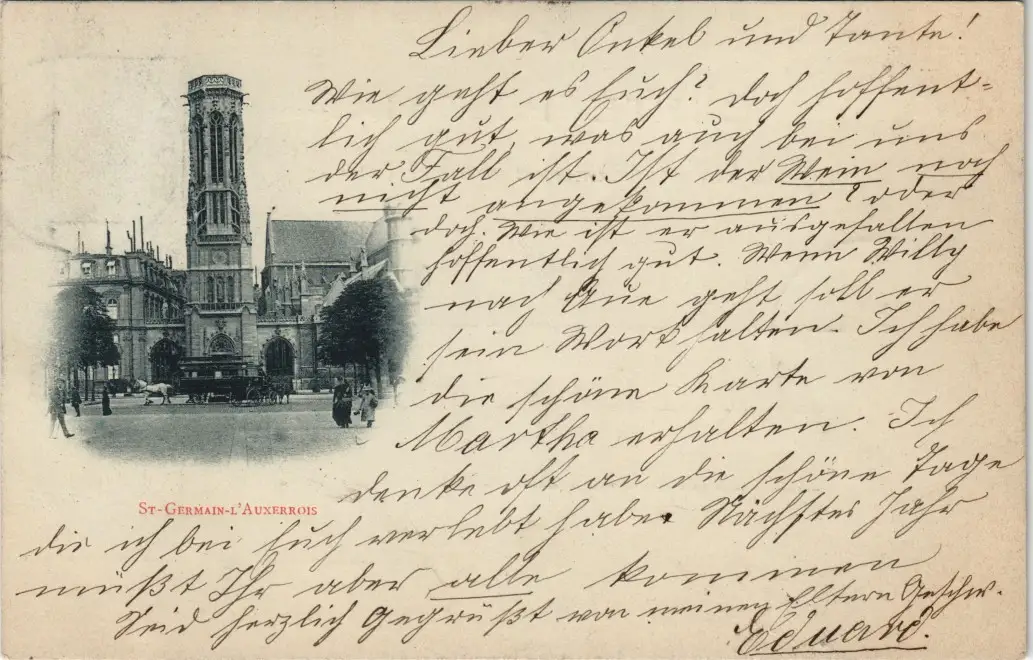 Lieber Onkel und Tante!
Wie geht es Euch? doch hoffent-
lich gut, was auch bei uns
der Fall ist. Ist der Wein noch
nicht angekommen? oder
doch. Wie ist er ausgefallen
hoffentlich gut. Wenn Willy
nach Aue geht soll er
sein Wort halten. Ich habe
die schöne Karte von
Martha erhalten. Ich
denke oft an die schöne Tage
die ich bei Euch verlebt habe. Nächstes Jahr
müßt Ihr aber alle kommen
Seid herzlich Gegrüßt von meinen Eltern Geschw.
Eduard.
ST-GERMAIN-L'AUXERROIS